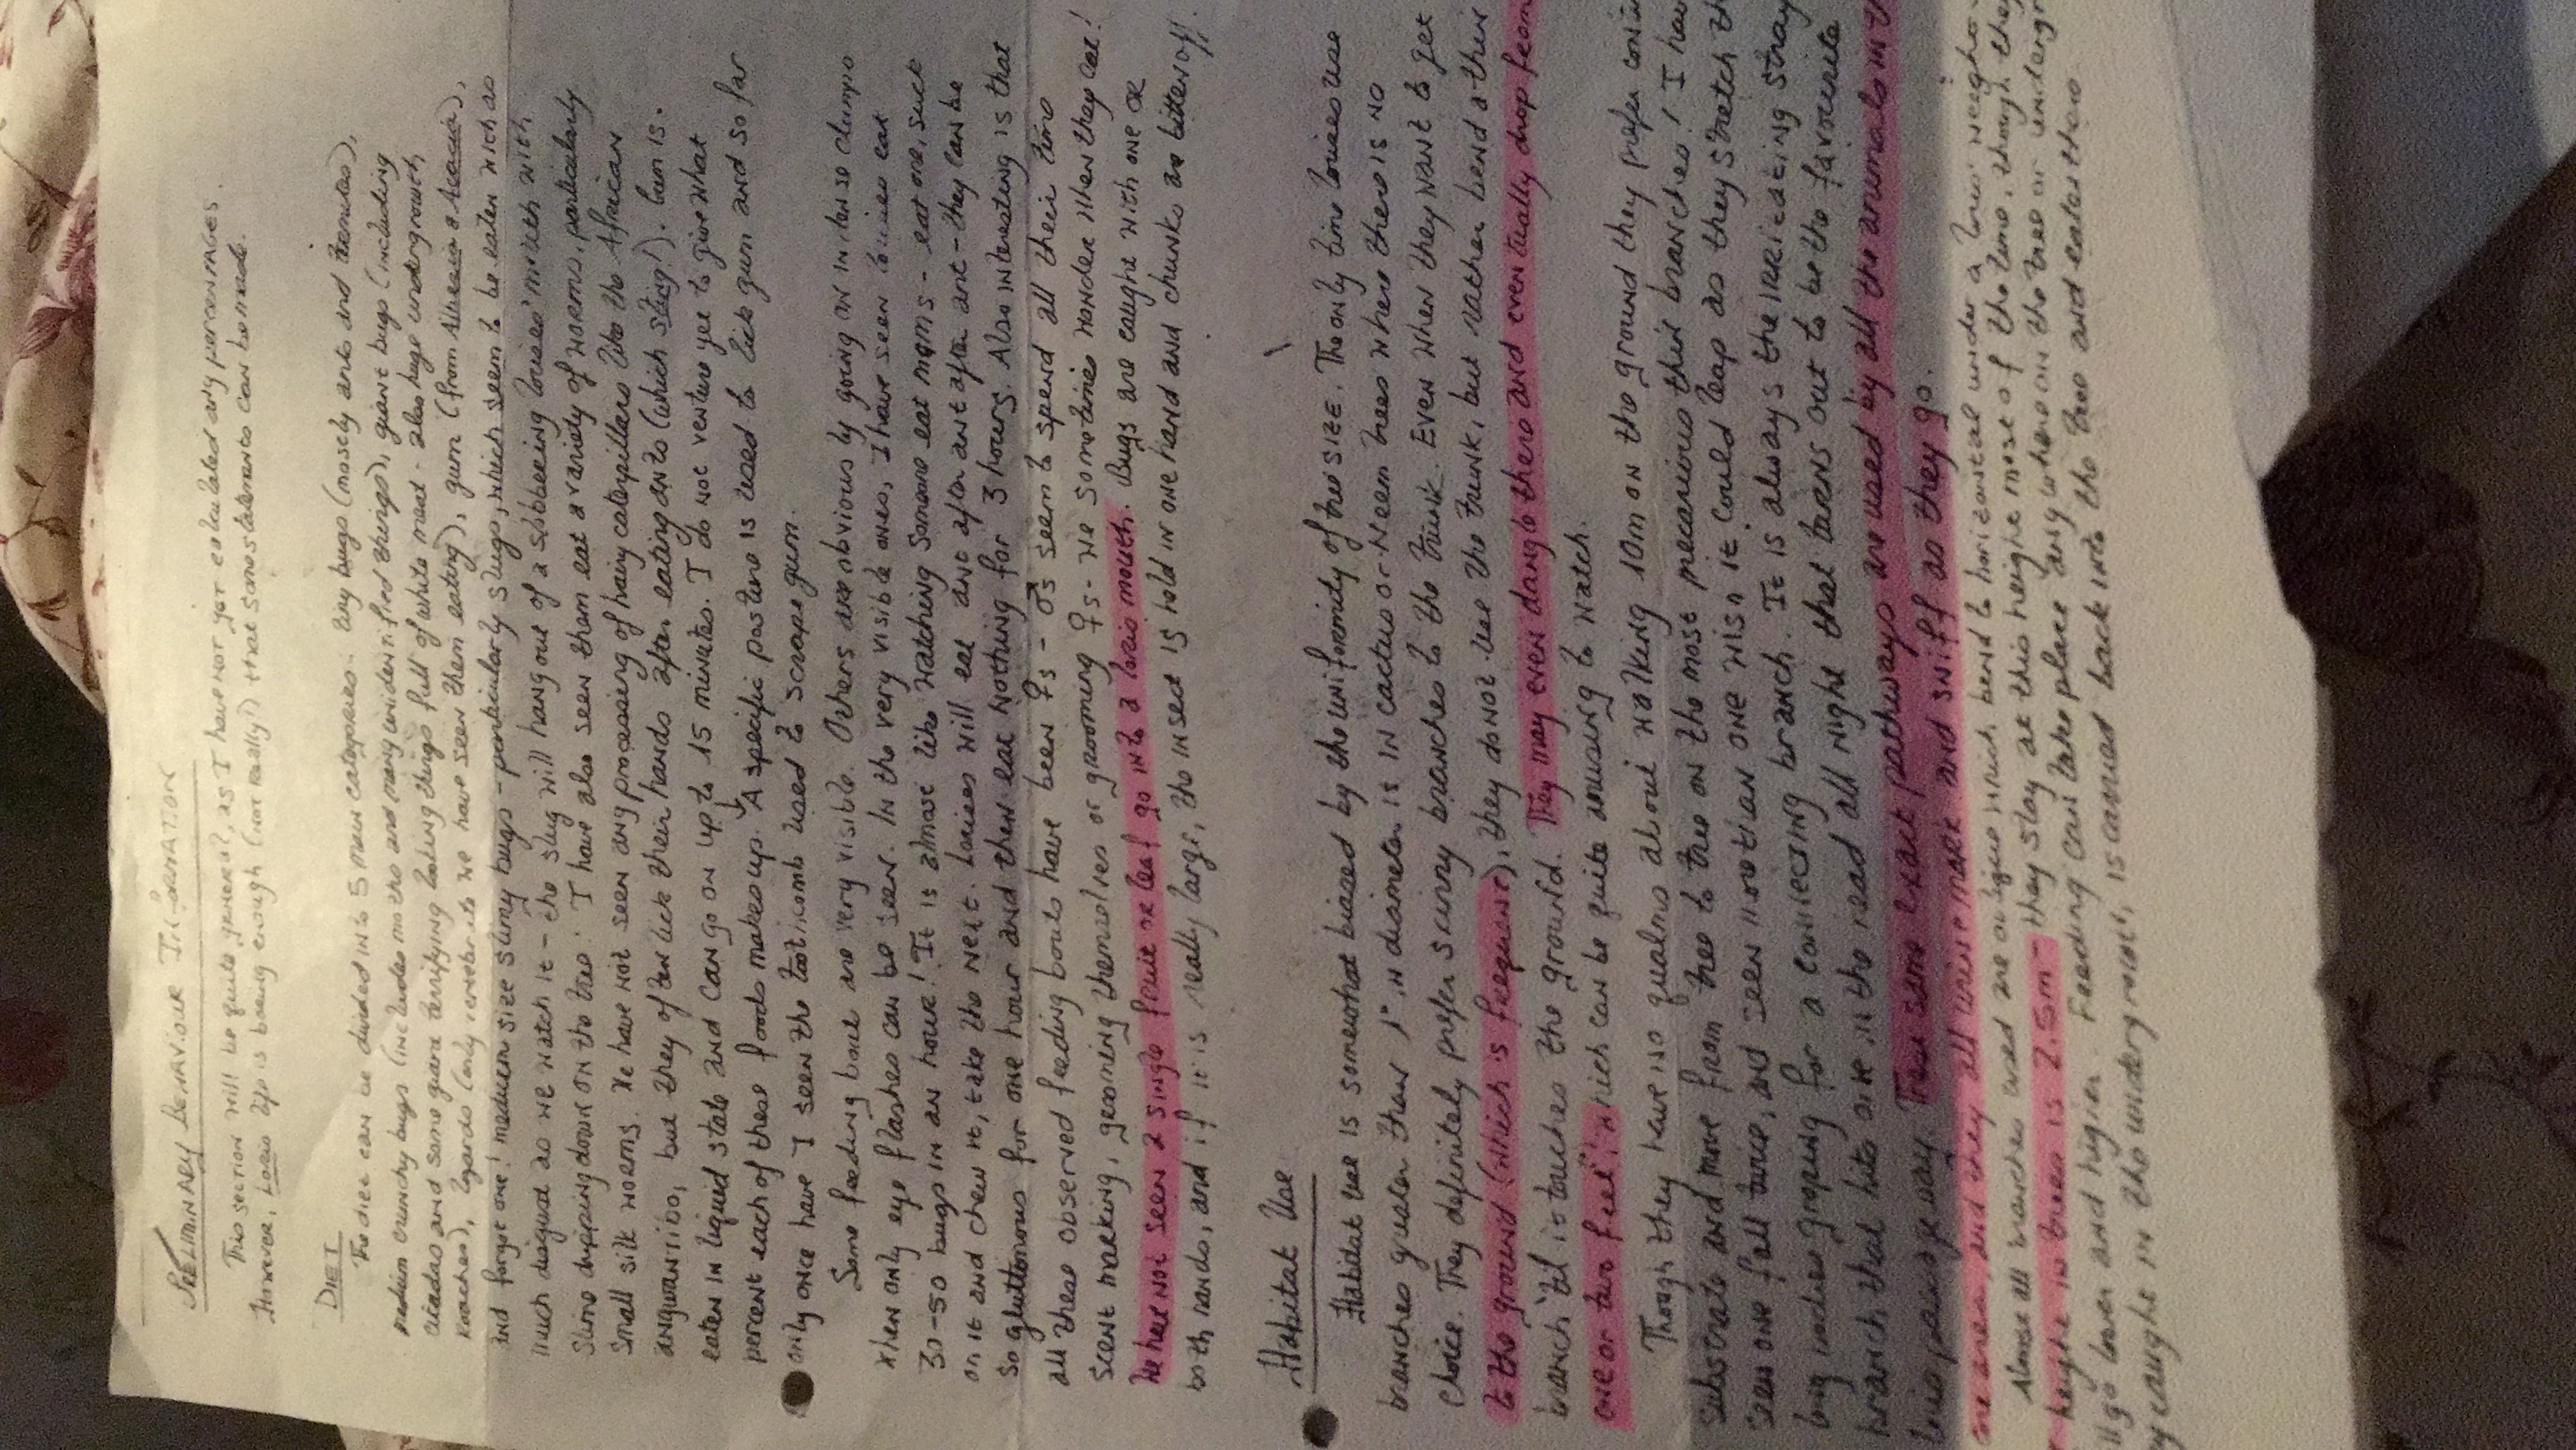 PRELIMINARY BEHAVIOUR INFORMATION
This section will be quite general, as I have not yet calculated any percentages.
However, Loris sp. is boring enough (not really!) that some statements can be made.
DIET
The diet can be divided into 5 main categories: tiny bugs (mostly ants and termites),
medium crunchy bugs (includes moths and many unidentified things), giant bugs (including
cicadas and some quite terrifying looking things full of white meat - also huge undergrowth
roaches), lizards (only vertebrate we have seen them eating), gum (from Albezia & Acacia),
and forgot one! medium size slimy bugs - particularly slugs, which seem to be eaten with as
much disgust as we watch it - the slug will hang out of a slobbering lorises' mouth with
slime dripping down on the tree! I have also seen them eat a variety of worms, particularly
small silk worms. We have not seen any processing of hairy caterpillars like the African
angwantibo, but they often lick their hands after eating ants (which sting!). Gum is
eaten in liquid state and can go on up to 15 minutes. I do not venture yet to give what
percent each of these foods makes up. A specific posture is used to lick gum and so far
only once have I seen the toothcomb used to scrape gum.
Some feeding bouts are very visible. Others are obvious by going on in dense clumps
when only eye flashes can be seen. In the very visible ones, I have seen lorises eat
30-50 bugs in an hour! It is almost like watching someone eat m&ms - eat one, suck
on it and chew it, take the next. Lorises will eat ant after ant after ant - they can be
so gluttonous for one hour and then eat nothing for 3 hours. Also interesting is that
all these observed feeding bouts have been ♀s - ♂s seem to spend all their time
scent marking, grooming themselves or grooming ♀s - we sometimes wonder when they eat!
We have not seen a single fruit or leaf go into a loris mouth. Bugs are caught with one or
both hands, and if it is really large, the insect is held in one hand and chunks are bitten off.
Habitat Use
Habitat use is somewhat biased by the uniformity of tree size. The only time lorises use
branches greater than 1" in diameter is in cactus or Neem trees where there is no
choice. They definitely prefer skinny branches to the trunk. Even when they want to get
to the ground (which is frequent), they do not use the trunk, but rather bend a thin
branch 'til it touches the ground. They may even dangle there and eventually drop from
one or two feet, which can be quite amusing to watch.
Though they have no qualms about walking 10m on the ground they prefer
substrate and move from tree to tree on the most precarious thin branches! I have
seen one fall twice, and seen more than one wish it could leap as they stretch
long bodies groping for a connecting branch. It is always the irritating stray
branch that hits one in the head all night that turns out to be the favourite
loris passage way. These same exact pathways are used by all the animals in
one area, and they all urine mark and sniff as they go.
Almost all branches used are oblique which bend to horizontal under a loris' weight
height in trees is 2.5m - they stay at this height most of the time, though they
go lower and higher. Feeding can take place anywhere on the tree or
caught in the undergrowth, is carried back into the tree and eaten there